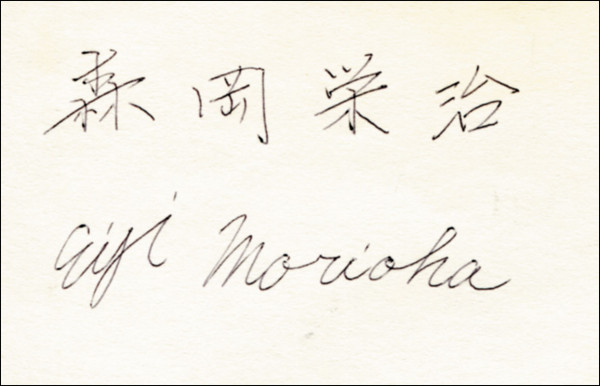 森岡栄治
Eiji Morioka